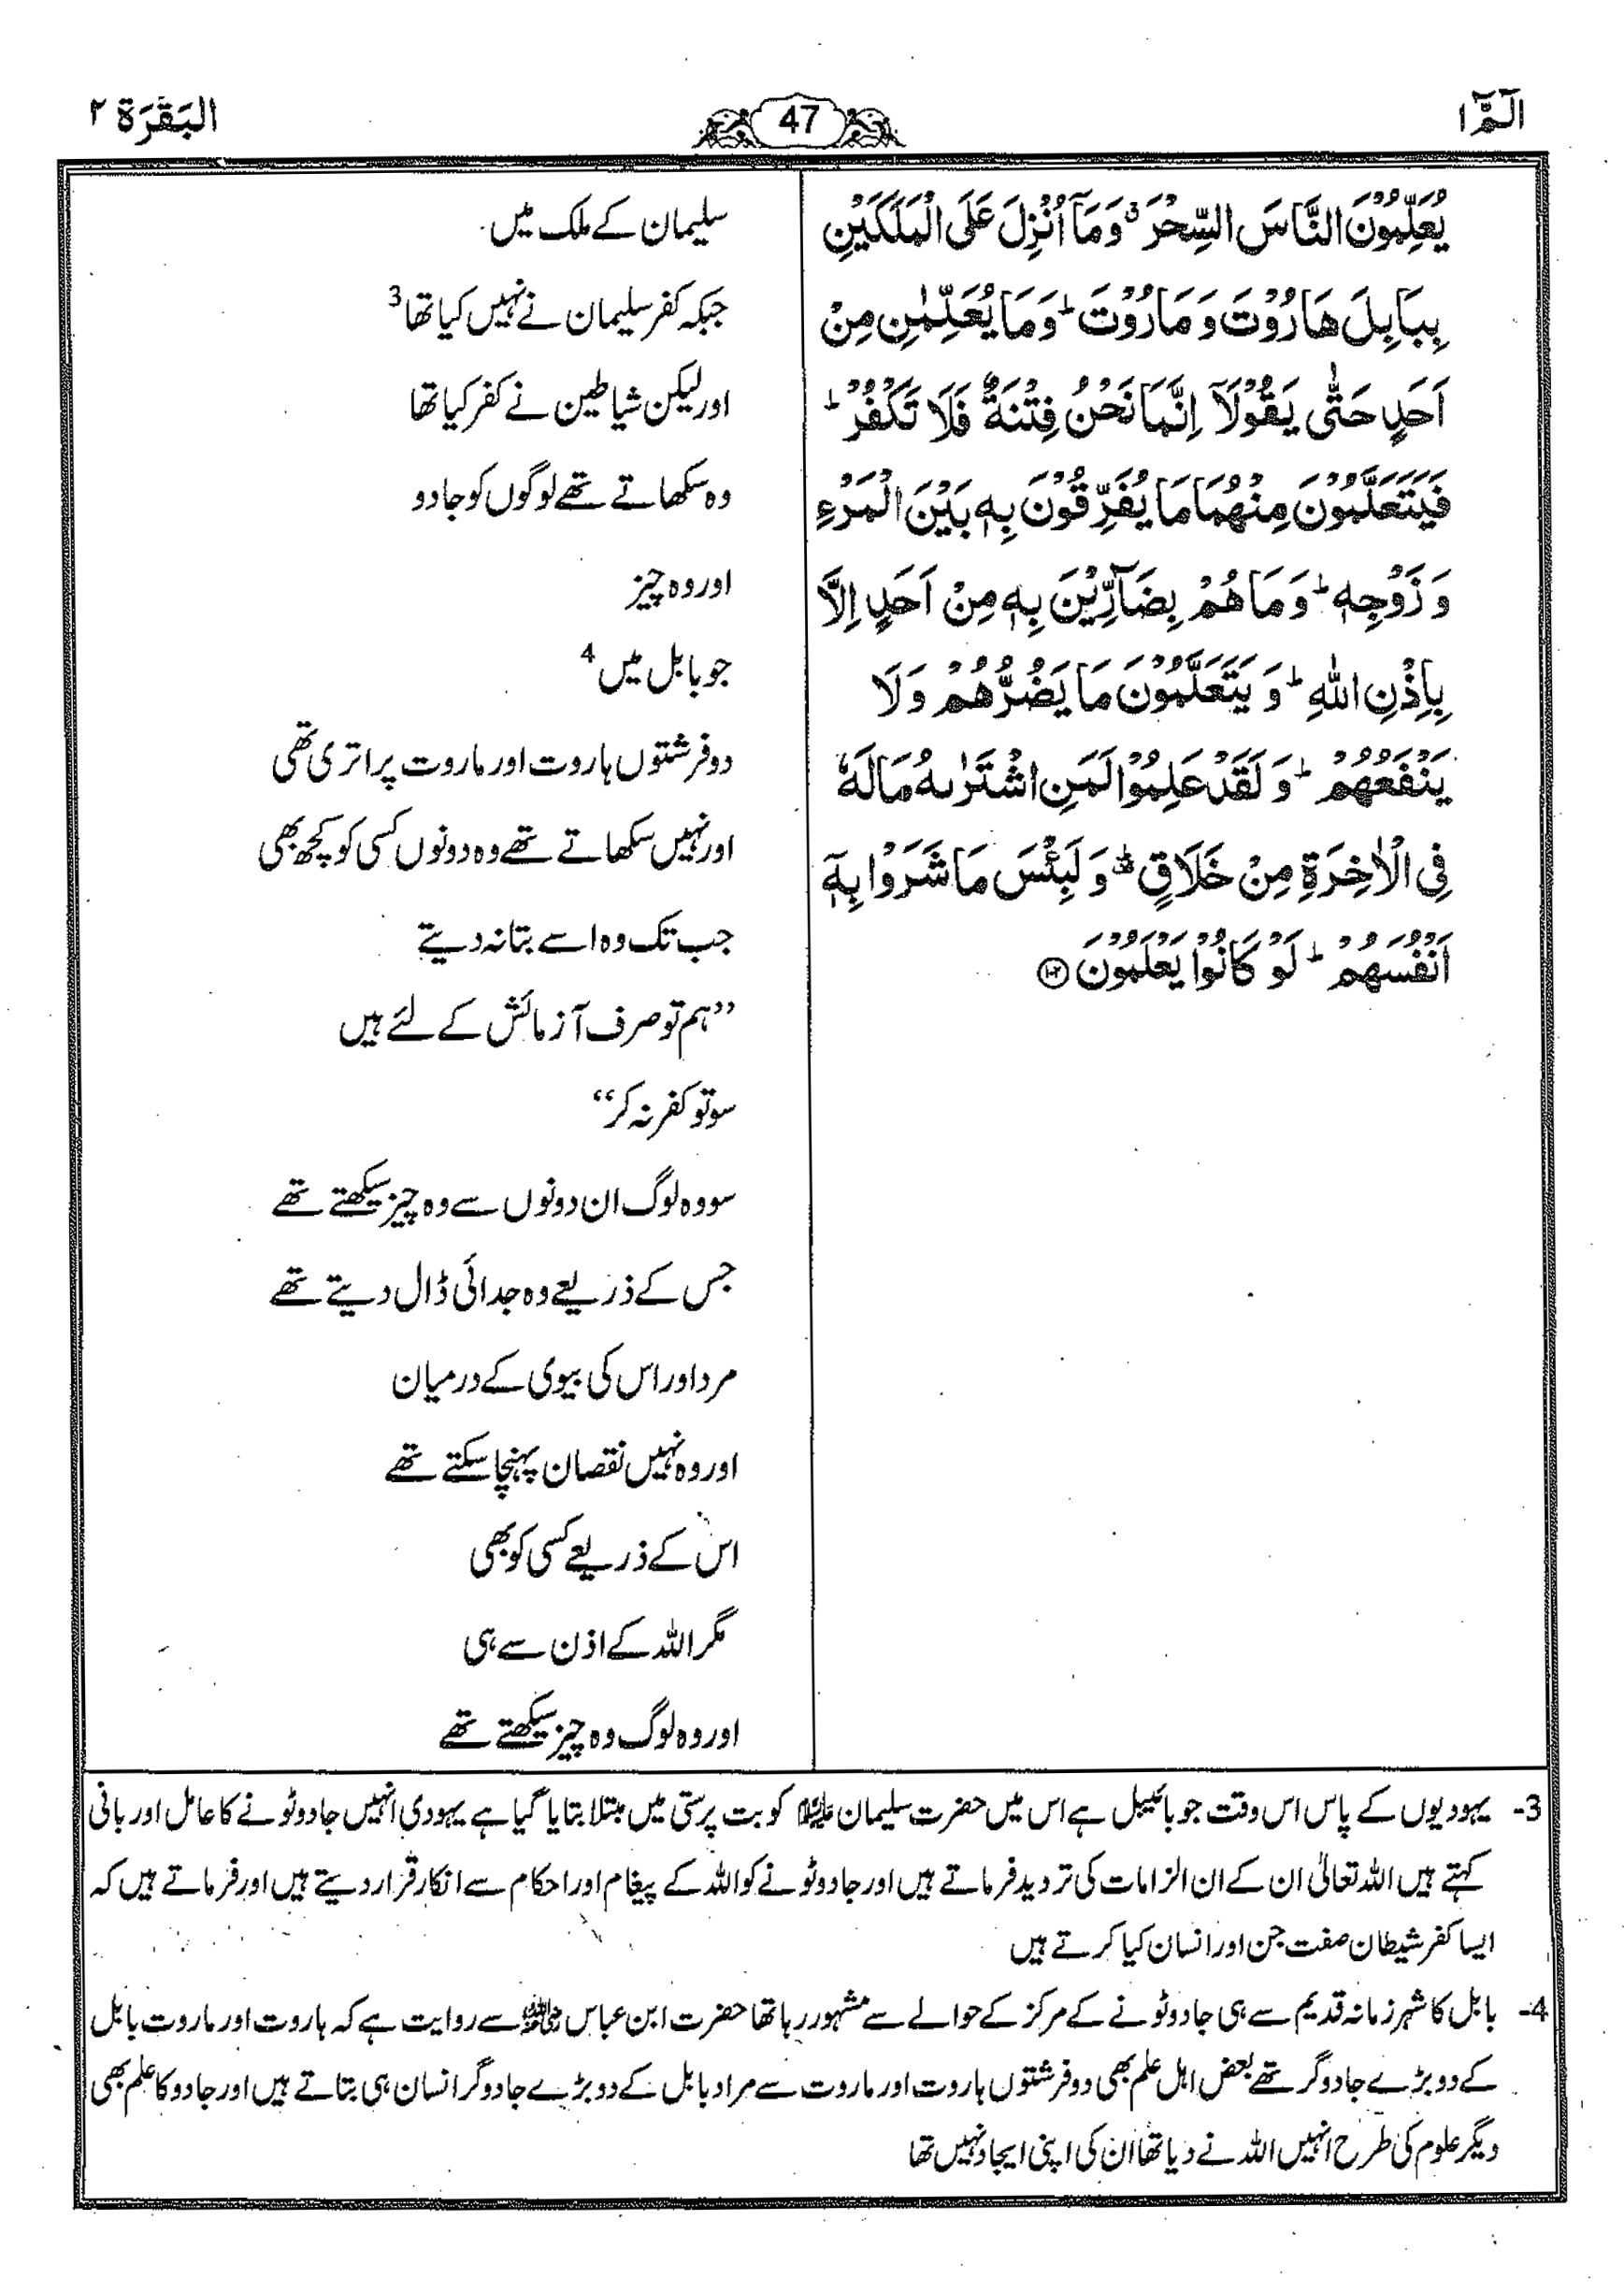 الٓمّٓ ١
47
البَقَرَة ٢
يُعَلِّمُوْنَ النَّاسَ السِّحْرَ ۗ وَمَاۤ اُنْزِلَ عَلَى الْمَلَكَيْنِ
بِبَابِلَ هَارُوْتَ وَ مَارُوْتَ ؕ وَمَا يُعَلِّمٰنِ مِنْ
اَحَدٍ حَتّٰى يَقُوْلَاۤ اِنَّمَا نَحْنُ فِتْنَةٌ فَلَا تَكْفُرْ ؕ
فَيَتَعَلَّمُوْنَ مِنْهُمَا مَا يُفَرِّقُوْنَ بِهٖ بَيْنَ الْمَرْءِ
وَ زَوْجِهٖ ؕ وَمَا هُمْ بِضَآرِّيْنَ بِهٖ مِنْ اَحَدٍ اِلَّا
بِاِذْنِ اللّٰهِ ؕ وَ يَتَعَلَّمُوْنَ مَا يَضُرُّهُمْ وَلَا
يَنْفَعُهُمْ ؕ وَ لَقَدْ عَلِمُوْا لَمَنِ اشْتَرٰىهُ مَا لَهٗ
فِى الْاٰخِرَةِ مِنْ خَلَاقٍ ؕ۫ وَ لَبِئْسَ مَا شَرَوْا بِهٖۤ
اَنْفُسَهُمْ ؕ لَوْ كَانُوْا يَعْلَمُوْنَ ۝١٠٢
سلیمان کے ملک میں
جبکہ کفر سلیمان نے نہیں کیا تھا 3
اور لیکن شیاطین نے کفر کیا تھا
وہ سکھاتے تھے لوگوں کو جادو
اور وہ چیز
جو بابل میں 4
دو فرشتوں ہاروت اور ماروت پر اتری تھی
اور نہیں سکھاتے تھے وہ دونوں کسی کو کچھ بھی
جب تک وہ اسے بتا نہ دیتے
”ہم تو صرف آزمائش کے لئے ہیں
سو تو کفر نہ کر“
سو وہ لوگ ان دونوں سے وہ چیز سیکھتے تھے
جس کے ذریعے وہ جدائی ڈال دیتے تھے
مرد اور اس کی بیوی کے درمیان
اور وہ نہیں نقصان پہنچا سکتے تھے
اس کے ذریعے کسی کو بھی
مگر اللہ کے اذن سے ہی
اور وہ لوگ وہ چیز سیکھتے تھے
3- یہودیوں کے پاس اس وقت جو بائیبل ہے اس میں حضرت سلیمان علیہ السلام کو بت پرستی میں مبتلا بتایا گیا ہے یہودی انہیں جادو ٹونے کا عامل اور بانی
کہتے ہیں اللہ تعالیٰ ان کے ان الزامات کی تردید فرماتے ہیں اور جادو ٹونے کو اللہ کے پیغام اور احکام سے انکار قرار دیتے ہیں اور فرماتے ہیں کہ
ایسا کفر شیطان صفت جن اور انسان کیا کرتے ہیں
4- بابل کا شہر زمانہ قدیم سے ہی جادو ٹونے کے مرکز کے حوالے سے مشہور رہا تھا حضرت ابن عباس سے روایت ہے کہ ہاروت اور ماروت بابل
کے دو بڑے جادوگر تھے بعض اہل علم بھی دو فرشتوں ہاروت اور ماروت سے مراد بابل کے دو بڑے جادوگر انسان ہی بتاتے ہیں اور جادو کا علم بھی
دیگر علوم کی طرح انہیں اللہ نے دیا تھا ان کی اپنی ایجاد نہیں تھا